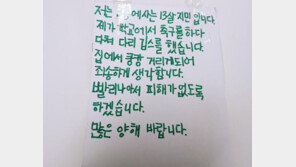 저는 에사는 13살 지민 입니다.
제가 학교에서 축구를 하다
다쳐 다리 깁스를 했습니다.
집에서 쿵쾅 거리게되어
죄송하게 생각합니다.
빨리나아서 피해가없도록
하겠습니다.
많은 양해 바랍니다.